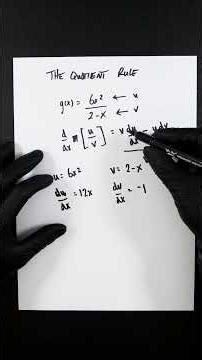 THE QUOTIENT RULE
g(x) = 6x² / 2-x ← u ← v
d/dx [u/v] = v du/dx - u dv
u = 6x² v = 2-x
du/dx = 12x dv/dx = -1